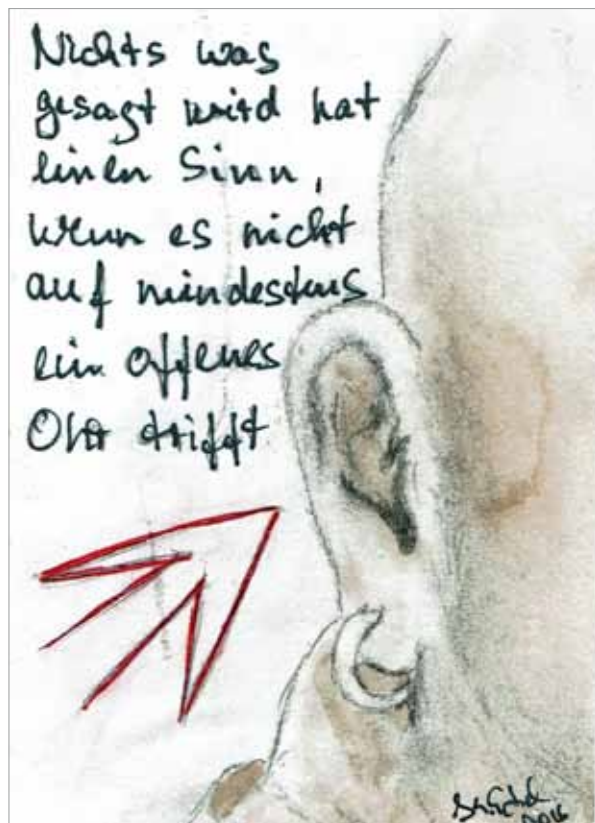 Nichts was
gesagt wird hat
einen Sinn,
wenn es nicht
auf mindestens
ein offenes
Ohr trifft
2016